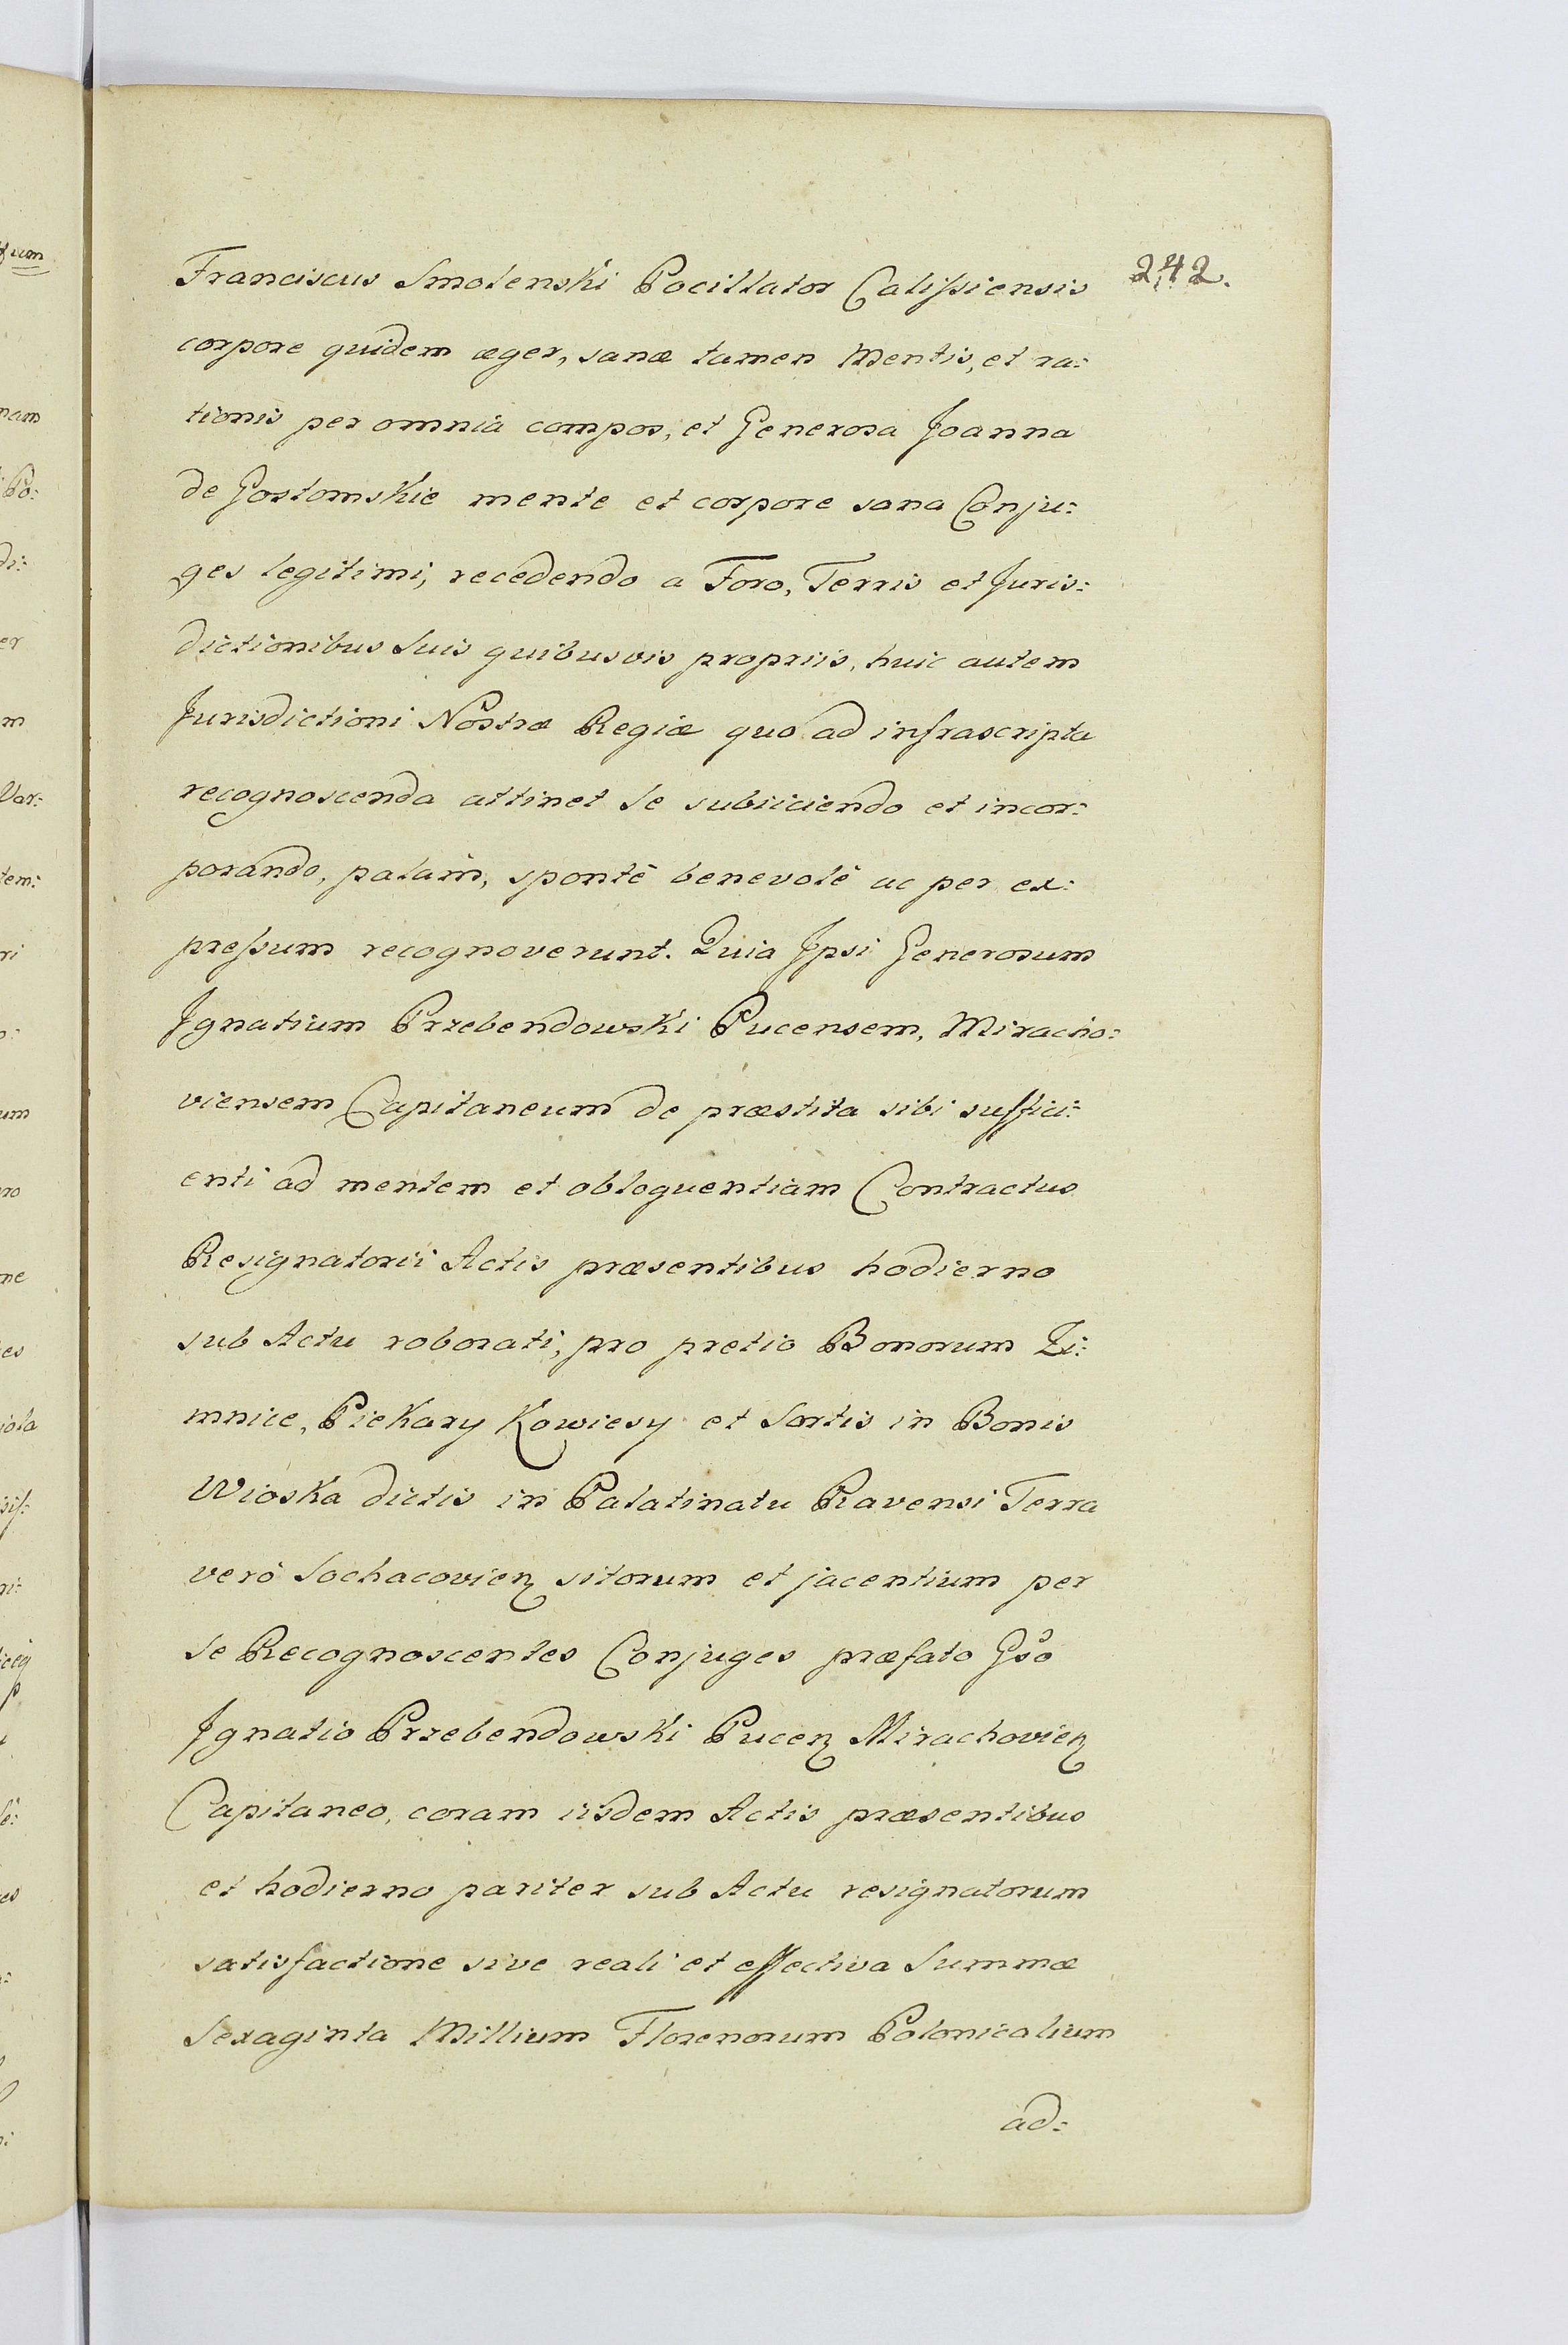 242.
Franciscus Smolenski Pocillator Calissiensis
corpore quidem æger, sanæ tamen Mentis, et ra:
tionis per omnia compos, et Generosa Joanna
de Gostomskie mente et corpore sana Conju:
ges legitimi, recedendo a Foro, Terris et Juris:
dictionibus Suis quibusvis propriis, huic autem
Jurisdictioni Nostræ Regiæ quo ad infrascripta
recognoscenda attinet Se subiiciendo et incor:
porando, palam, spontè benevolè ac per ex:
pressum recognoverunt. Quia Jpsi Generosum
Jgnatium Przebendowski Pucensem, Miracho:
viensem Capitaneum de præstita sibi suffici:
enti ad mentem et obloquentiam Contractus
Resignatorii Actis præsentibus hodierno
sub Actu roborati, pro pretio Bonorum Zi:
mnice, Piekary Kowiesy et Sortis in Bonis
Wioska dictis in Palatinatu Ravensi Terra
verò Sochacovien sitorum et jacentium per
Se Recognoscentes Conjuges præfato Gso
Jgnatio Przebendowski Pucen Mirachovien
Capitaneo, coram iisdem Actis præsentibus
et hodierno pariter sub Actu resignatorum
satisfactione sive reali et effectiva Summæ
Sexaginta Millium Florenorum Polonicalium
ad: